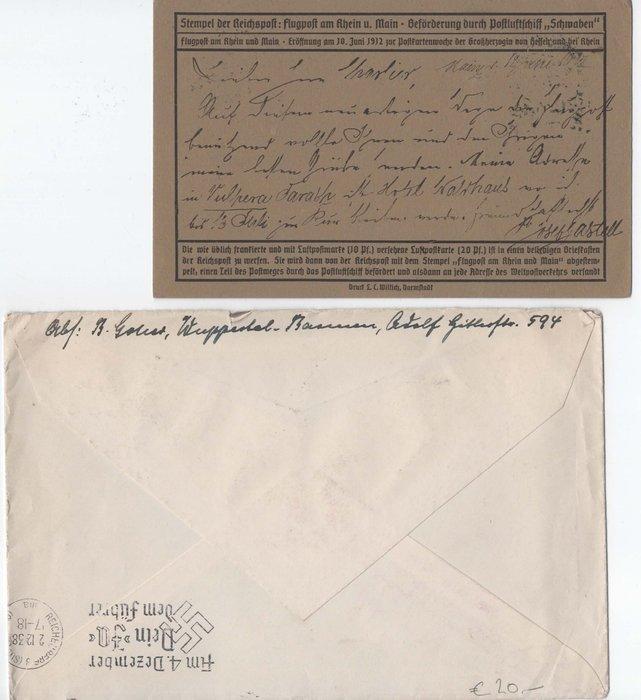 Stempel der Reichspost: Flugpost am Rhein u. Main · Beförderung durch Postluftschiff „Schwaben“
Flugpost am Rhein und Main · Eröffnung am 10. Juni 1912 zur Postkartenwoche der Großherzogin von Hessen und bei Rhein
Mainz
Auf diesem neuartigen Wege die Flugpost
benützend wollte Ihnen und den Ihrigen
meine besten Grüße senden. Meine Adresse
in Vulpera Tarasp Hotel Waldhaus wo ich
bis Juli zur Kur bleiben werde.
Die wie üblich frankierte und mit Luftpostmarke (10 Pf.) versehene Luftpostkarte (20 Pf.) ist in einen beliebigen Briefkasten
der Reichspost zu werfen. Sie wird dann von der Reichspost mit dem Stempel „Flugpost am Rhein und Main“ abgestem-
pelt, einen Teil des Postweges durch das Postluftschiff befördert und alsdann an jede Adresse des Weltpostverkehrs versandt
Druck L. C. Wittich, Darmstadt
Abs: B. Wuppertal-Barmen, Adolf Hitlerstr. 594
Am 4. Dezember
Dein »Ja«
dem Führer
REICHENBERG
2.12.38
17-18
€ 20,—